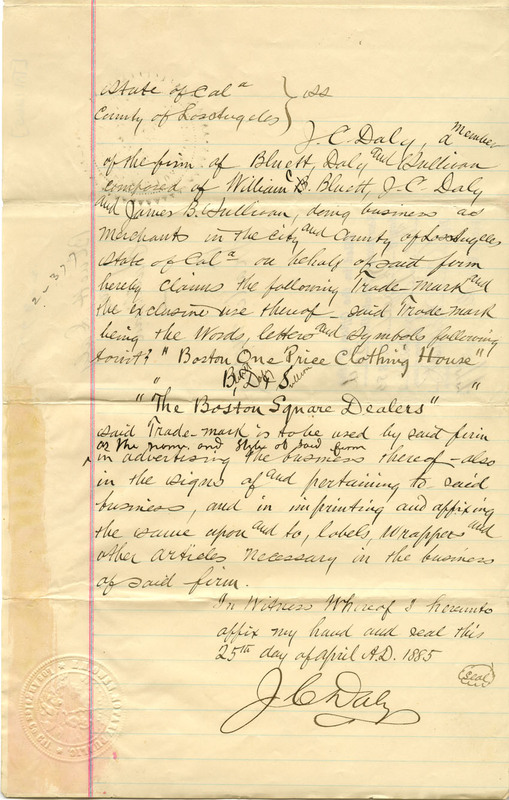 State of Cal a } ss
County of Los Angeles
J. C. Daly, a member
of the firm of Bluett, Daly and Sullivan
composed of William C. B. Bluett, J. C. Daly
and James B. Sullivan, doing business as
Merchants in the City and County of Los Angeles
State of Cal a on behalf of said firm
hereby claims the following Trade-mark and
the exclusive use thereof - said Trade-mark
being the Words, letters and symbols following
towit: "Boston One Price Clothing House"
" Bluett, Daly & Sullivan "
"The Boston Square Dealers"
said Trade-mark is to be used by said firm
as the name and style of said firm
in advertising the business thereof - also
in the signs of and pertaining to said
business, and in imprinting and affixing
the same upon and to, labels, wrappers and
other articles necessary in the business
of said firm.
In Witness Whereof I hereunto
affix my hand and seal this
25th day of April A.D. 1885
J C Daly
seal
2-377